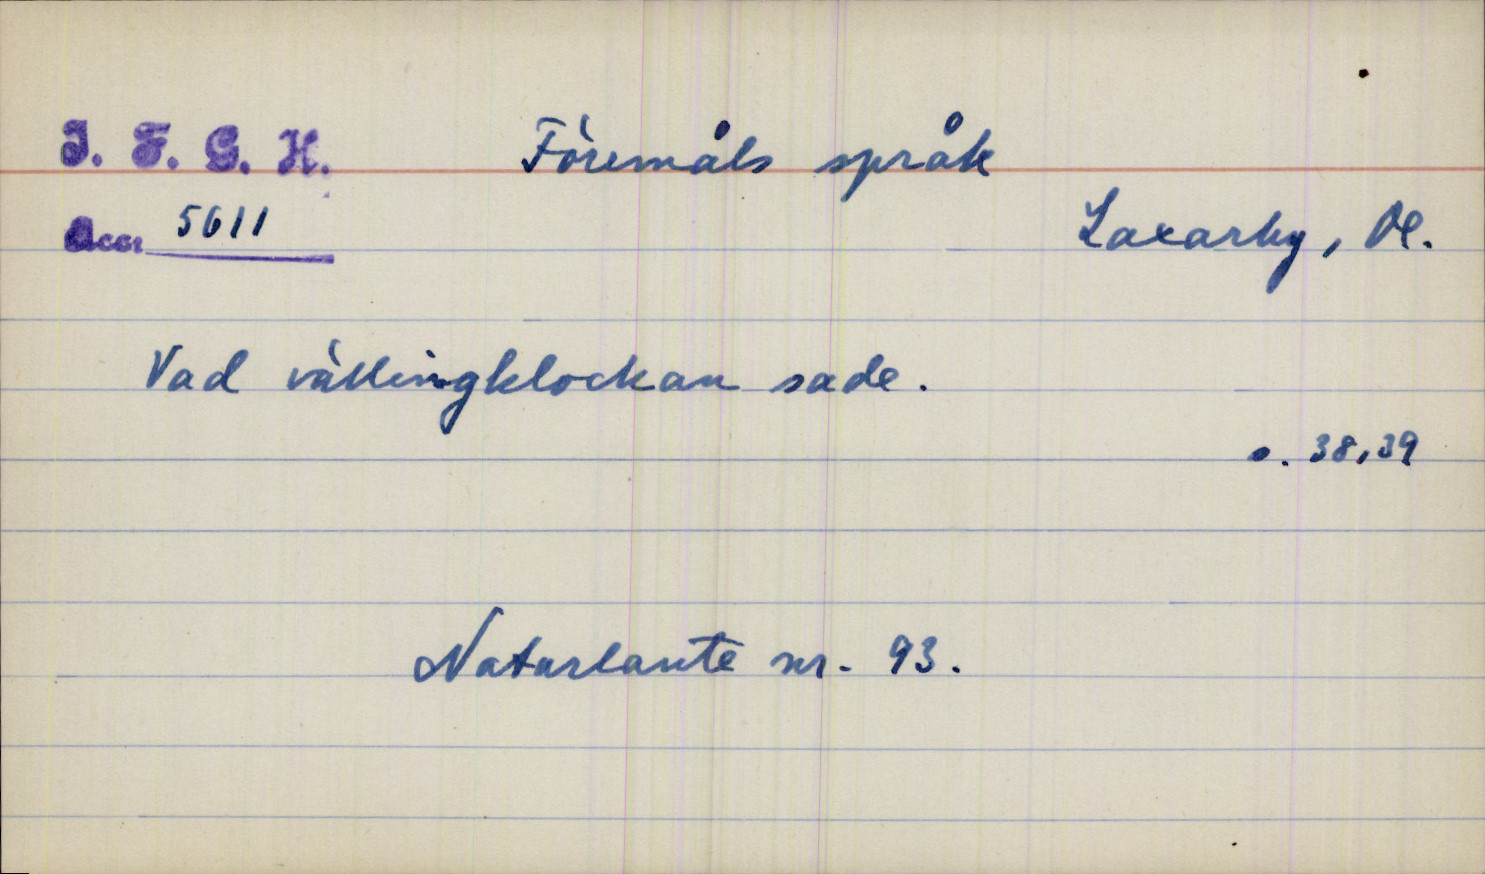 I. F. G. H.
Föremåls språk
Accr 5611
Laxarby, Dl.
Vad vällingklockan sade.
s. 38, 39
Naturlaute nr. 93.